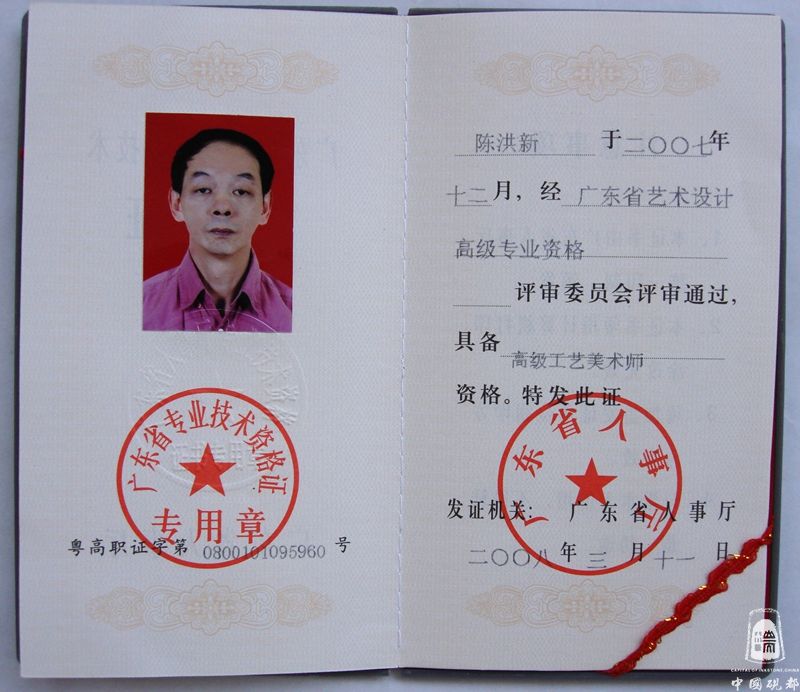 广东省专业技术资格证
专用章
粤高职证字第 0800101095960 号
陈洪新 于 二〇〇七年
十二月，经 广东省艺术设计
高级专业资格
评审委员会评审通过，
具备 高级工艺美术师
资格。特发此证
广东省人事厅
发证机关： 广东省人事厅
二〇〇八年 三 月 十一 日
CAPITAL OF INKSTONE, CHINA
中国砚都